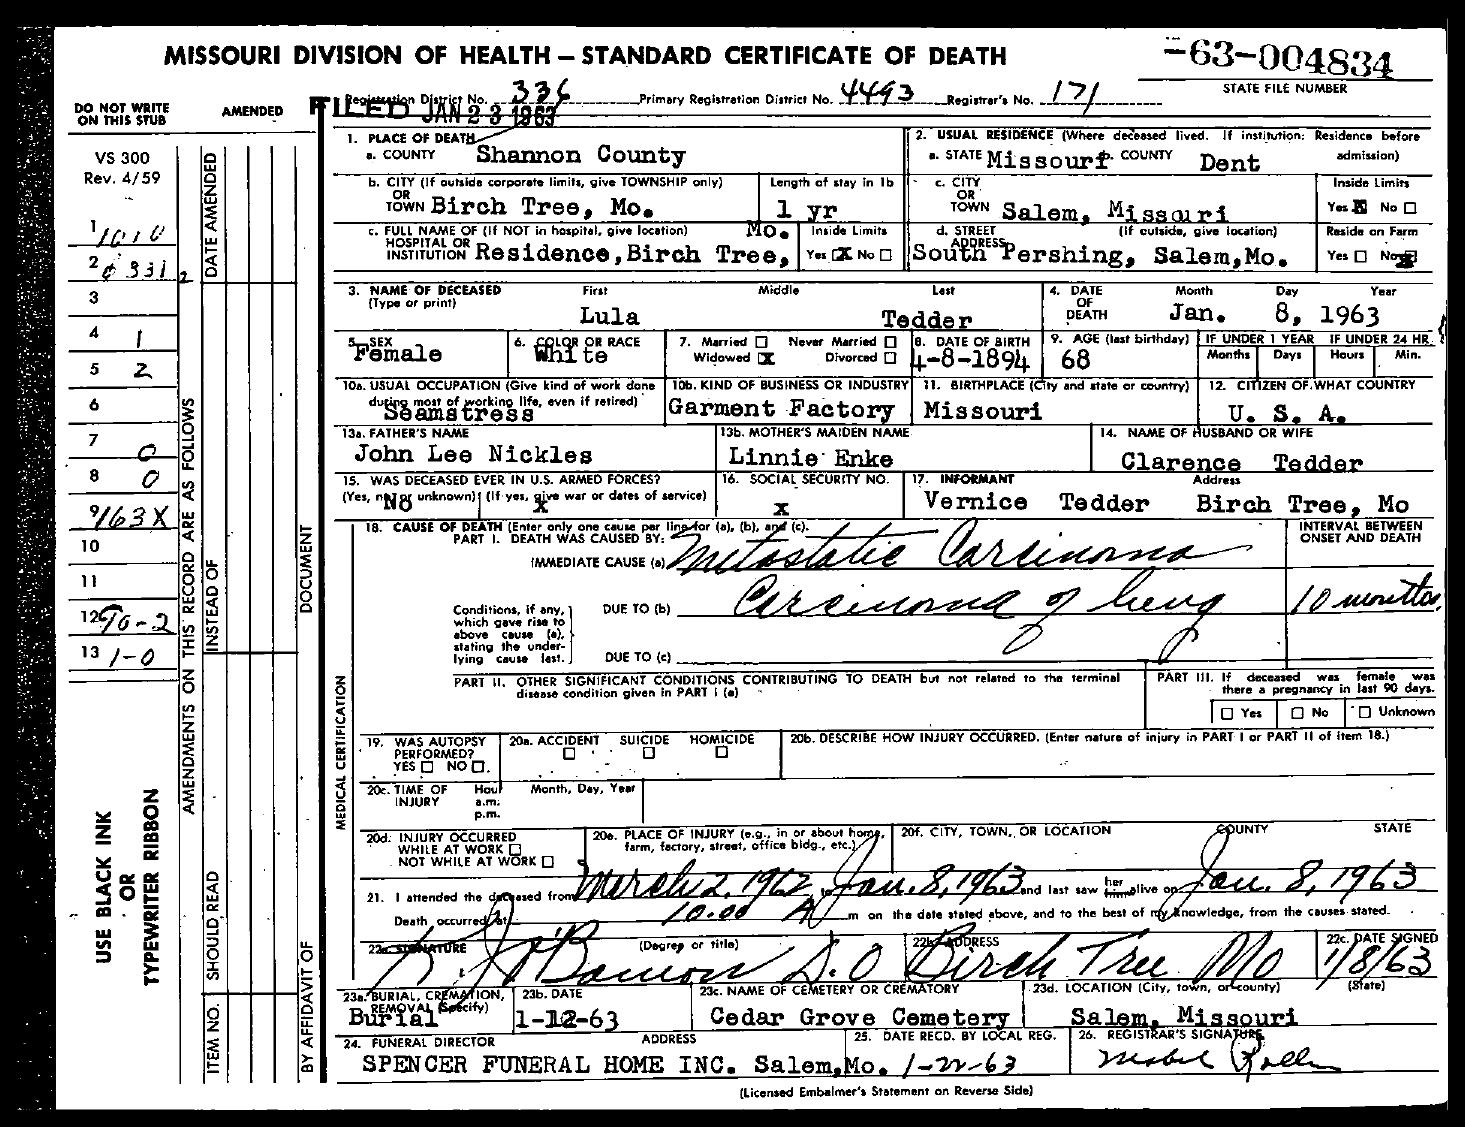 MISSOURI DIVISION OF HEALTH — STANDARD CERTIFICATE OF DEATH
-63-004834
STATE FILE NUMBER
DO NOT WRITE ON THIS STUB
AMENDED
FILED JAN 23 1963
Registration District No. 336 Primary Registration District No. 4493 Registrar's No. 171
VS 300
Rev. 4/59
1. PLACE OF DEATH
a. COUNTY Shannon County
2. USUAL RESIDENCE (Where deceased lived. If institution: Residence before admission)
a. STATE Missouri b. COUNTY Dent
b. CITY (If outside corporate limits, give TOWNSHIP only) OR TOWN Birch Tree, Mo.
Length of stay in 1b 1 yr
c. CITY OR TOWN Salem, Missouri
Inside Limits Yes ☒ No ☐
c. FULL NAME OF (If NOT in hospital, give location) HOSPITAL OR INSTITUTION Residence, Birch Tree, Mo.
Inside Limits Yes ☒ No ☐
d. STREET ADDRESS (If outside, give location) South Pershing, Salem, Mo.
Reside on Farm Yes ☐ No ☒
3. NAME OF DECEASED (Type or print) First Middle Last
Lula Tedder
4. DATE OF DEATH Month Day Year
Jan. 8, 1963
5. SEX Female
6. COLOR OR RACE White
7. Married ☐ Never Married ☐
Widowed ☒ Divorced ☐
8. DATE OF BIRTH 4-8-1894
9. AGE (last birthday) 68
IF UNDER 1 YEAR Months Days
IF UNDER 24 HR. Hours Min.
10a. USUAL OCCUPATION (Give kind of work done during most of working life, even if retired) Seamstress
10b. KIND OF BUSINESS OR INDUSTRY Garment Factory
11. BIRTHPLACE (City and state or country) Missouri
12. CITIZEN OF WHAT COUNTRY U. S. A.
13a. FATHER'S NAME John Lee Nickles
13b. MOTHER'S MAIDEN NAME Linnie Enke
14. NAME OF HUSBAND OR WIFE Clarence Tedder
15. WAS DECEASED EVER IN U.S. ARMED FORCES? (Yes, no, or unknown) (If yes, give war or dates of service) No X
16. SOCIAL SECURITY NO. X
17. INFORMANT Address
Vernice Tedder Birch Tree, Mo
18. CAUSE OF DEATH (Enter only one cause per line for (a), (b), and (c).
PART I. DEATH WAS CAUSED BY:
INTERVAL BETWEEN ONSET AND DEATH
IMMEDIATE CAUSE (a) Metastatic Carcinoma
Conditions, if any, which gave rise to above cause (a), stating the underlying cause last.
DUE TO (b) Carcinoma of lung 10 months
DUE TO (c)
PART II. OTHER SIGNIFICANT CONDITIONS CONTRIBUTING TO DEATH but not related to the terminal disease condition given in PART I (a)
PART III. If deceased was female was there a pregnancy in last 90 days.
☐ Yes ☐ No ☐ Unknown
19. WAS AUTOPSY PERFORMED? YES ☐ NO ☐
20a. ACCIDENT ☐ SUICIDE ☐ HOMICIDE ☐
20b. DESCRIBE HOW INJURY OCCURRED. (Enter nature of injury in PART I or PART II of item 18.)
20c. TIME OF INJURY Hour a.m. p.m. Month, Day, Year
20d. INJURY OCCURRED WHILE AT WORK ☐ NOT WHILE AT WORK ☐
20e. PLACE OF INJURY (e.g., in or about home, farm, factory, street, office bldg., etc.)
20f. CITY, TOWN, OR LOCATION COUNTY STATE
21. I attended the deceased from March 2, 1962 to Jan. 8, 1963 and last saw her/him alive on Jan. 8, 1963
Death occurred at 10:00 A m on the date stated above, and to the best of my knowledge, from the causes stated.
22a. SIGNATURE (Degree or title) D.O
22b. ADDRESS Birch Tree Mo
22c. DATE SIGNED 1/8/63
23a. BURIAL, CREMATION, REMOVAL (Specify) Burial
23b. DATE 1-12-63
23c. NAME OF CEMETERY OR CREMATORY Cedar Grove Cemetery
23d. LOCATION (City, town, or county) (State) Salem, Missouri
24. FUNERAL DIRECTOR ADDRESS
SPENCER FUNERAL HOME INC. Salem, Mo.
25. DATE RECD. BY LOCAL REG. 1-22-63
26. REGISTRAR'S SIGNATURE Mabel
(Licensed Embalmer's Statement on Reverse Side)
1 1010
2 0331 2
3
4 1
5 2
6
7 0
8 0
9 163X
10
11
12 90-2
13 1-0
USE BLACK INK OR TYPEWRITER RIBBON
AMENDMENTS ON THIS RECORD ARE AS FOLLOWS
DATE AMENDED
INSTEAD OF
SHOULD READ
ITEM NO.
DOCUMENT
BY AFFIDAVIT OF
MEDICAL CERTIFICATION